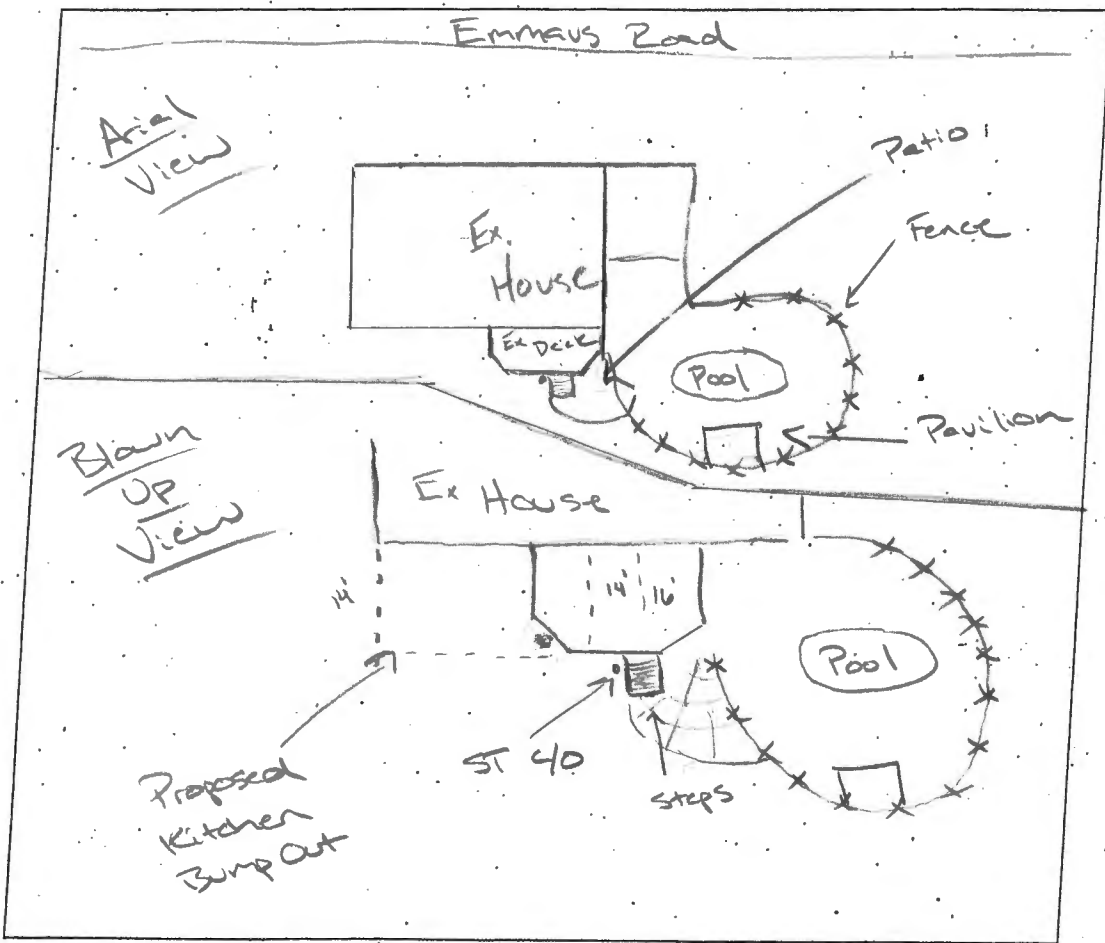 Emmaus Road
Arial
View
Patio
Fence
Ex.
House
Ex Deck
Pool
Pavilion
Blown
UP
View
Ex House
14'
14'
16'
Pool
ST C/O
Steps
Proposed
Kitchen
Bump Out